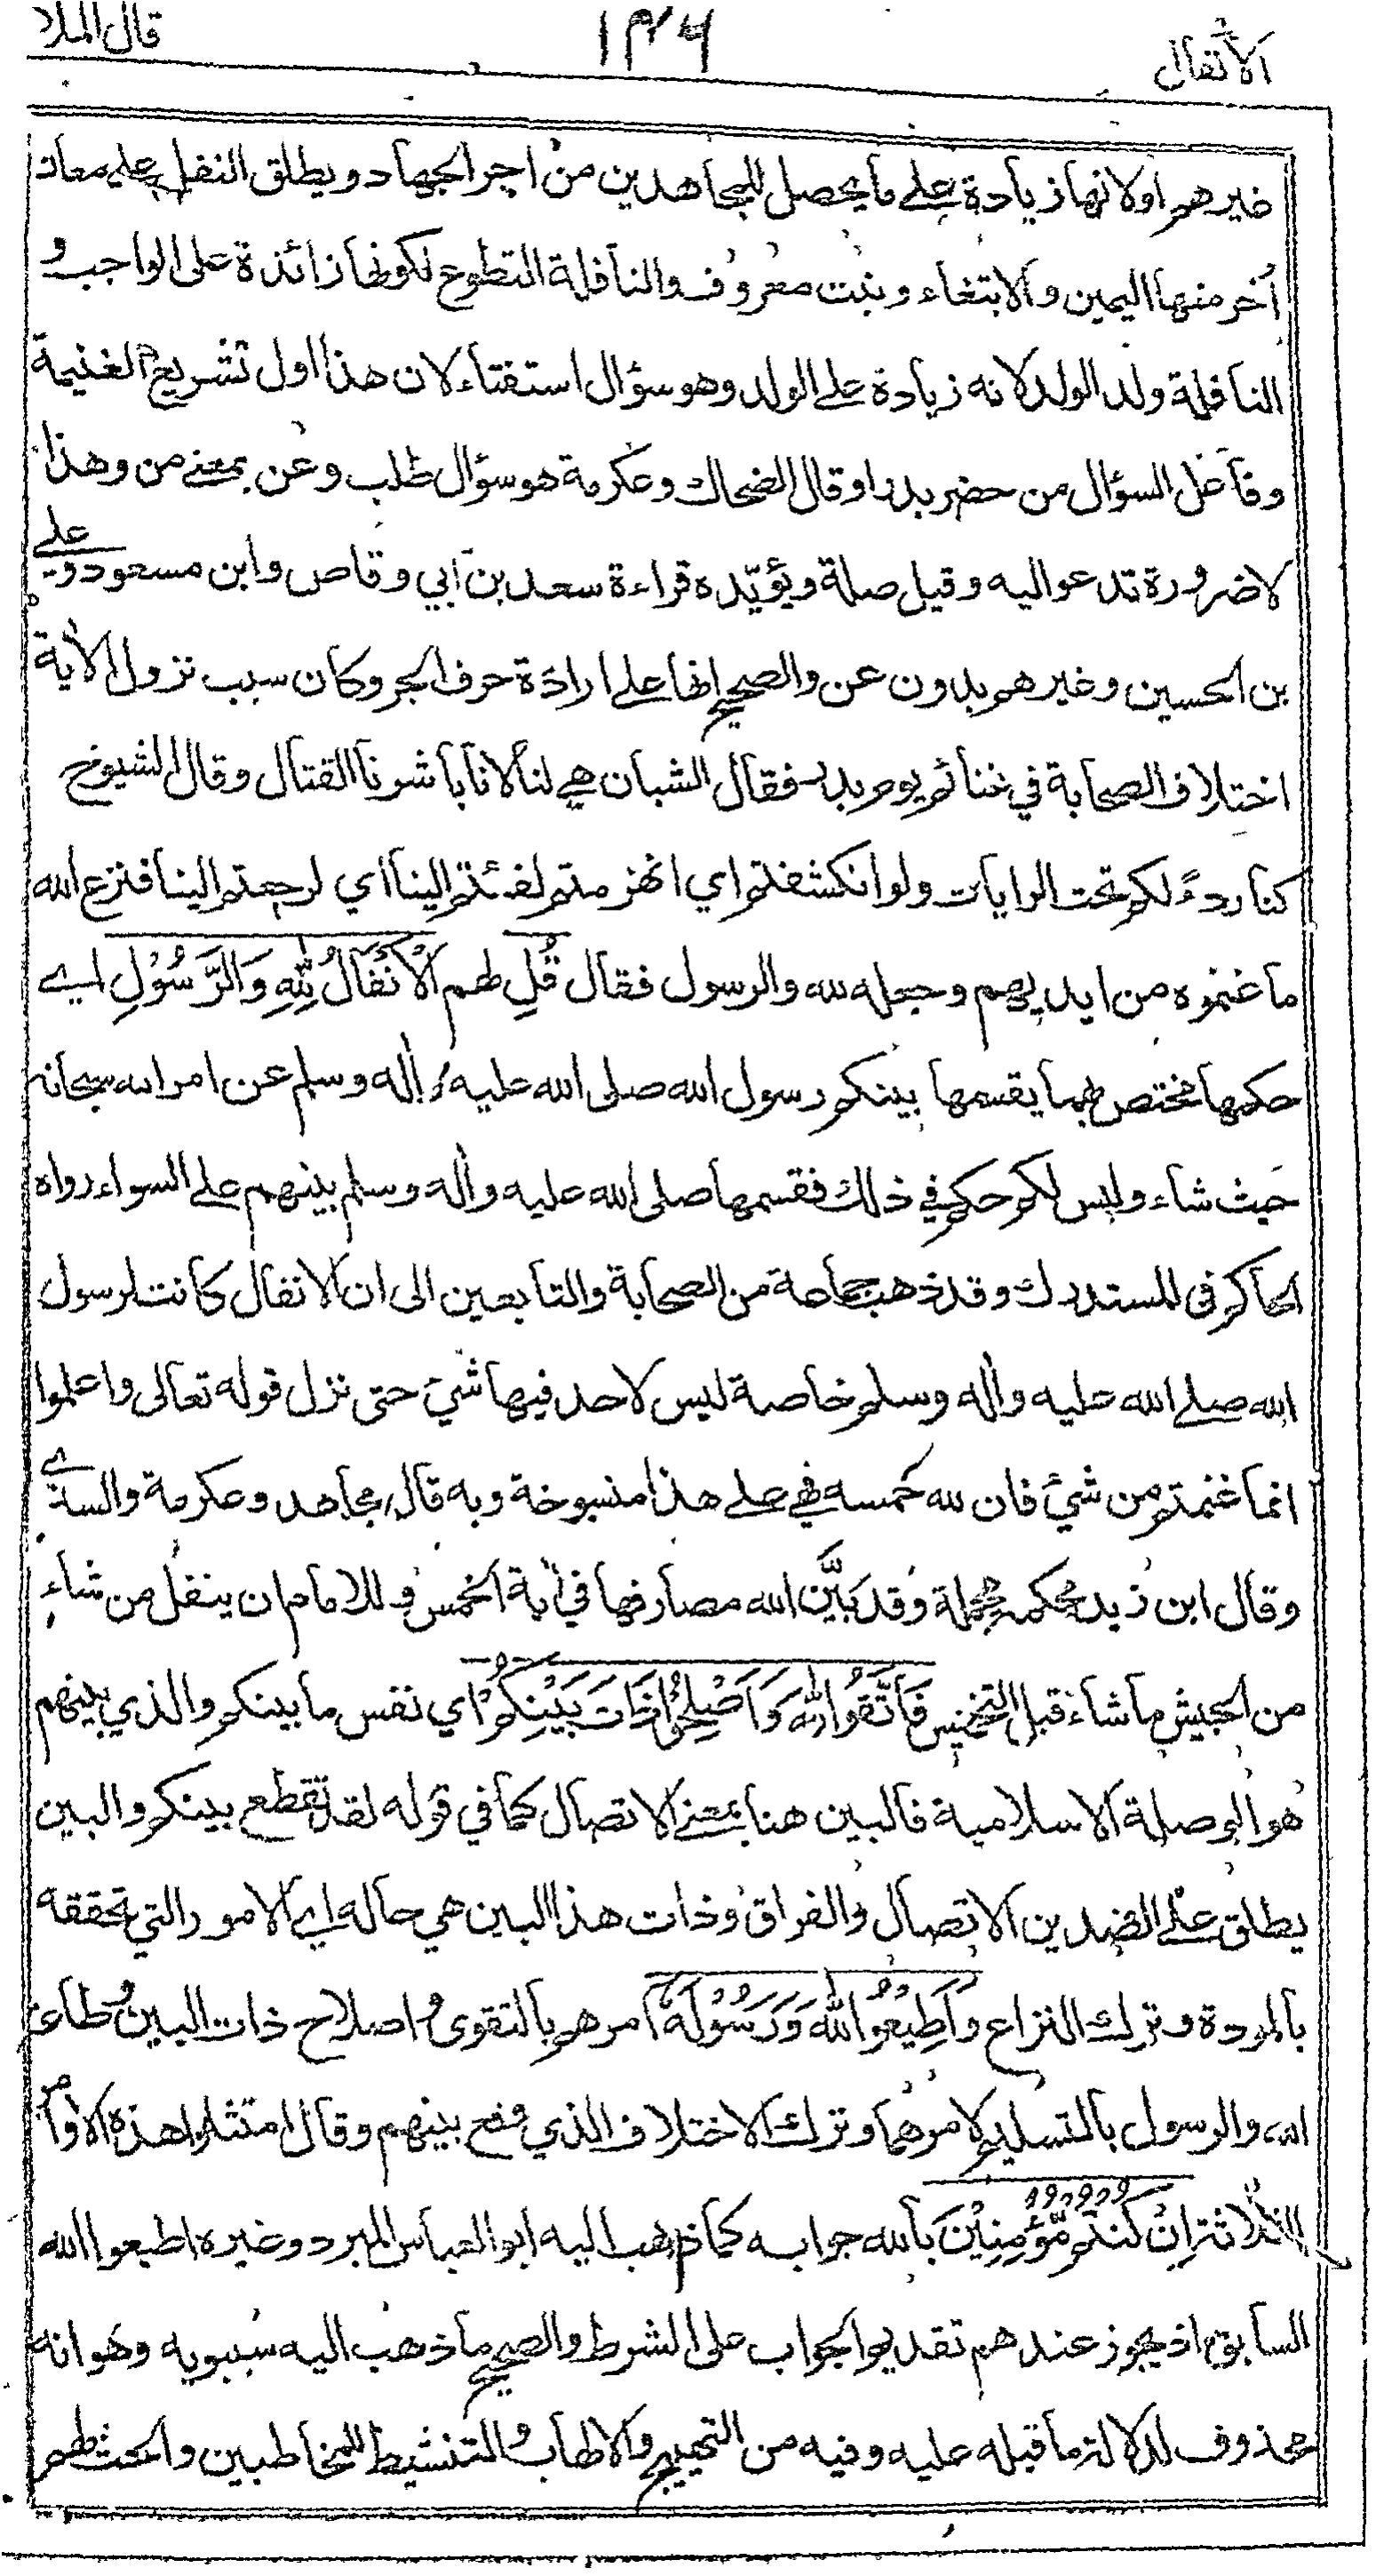 الأنفال ١٣٦ قال الملا
غيرهم او لانها زيادة على ما يحصل للمجاهدين من اجر الجهاد ويطلق النفل على معان
أخر منها اليمين والابتغاء ونبت معروف والنافلة التطوع لكونها زائدة على الواجب و
النافلة ولد الولد لانه زيادة على الولد وهو سؤال استفتاء لان هذا اول تشريع الغنيمة
وفاعل السؤال من حضر بدرا وقال الضحاك وعكرمة هو سؤال طلب وعن بمعنى من وهذا
لا ضرورة تدعو اليه وقيل صلة ويؤيّده قراءة سعد بن أبي وقاص وابن مسعود وعلي
بن الحسين وغيرهم بدون عن والصحيح انها على ارادة حرف الجر وكان سبب نزول الآية
اختلاف الصحابة في غنائم يوم بدر فقال الشبان هي لنا لانا باشرنا القتال وقال الشيوخ
كنا ردءً لكم تحت الرايات ولو انكشفتم اي انهزمتم لفئتم الينا اي لرجعتم الينا فنزع الله
ما غنموه من ايديهم وجعله لله والرسول فقال قُلِ لهم الْأَنفَالُ لِلّٰهِ وَالرَّسُوْلِ اي
حكمها مختص بهما يقسمها بينكم رسول الله صلى الله عليه وأله وسلم عن امر الله سبحانه
حيث شاء وليس لكم حكم في ذلك فقسمها صلى الله عليه وأله وسلم بينهم على السواء رواه
الحاكم فى المستدرك وقد ذهب جماعة من الصحابة والتابعين الى ان الانفال كانت لرسول
الله صلى الله عليه وأله وسلم خاصة ليس لاحد فيها شيء حتى نزل قوله تعالى واعلموا
انما غنمتم من شيء فان لله خمسه فهي على هذا منسوخة وبه قال مجاهد وعكرمة والسدي
وقال ابن زيد محكمة مجملة وقد بَيَّن الله مصارفها في أية الخمس وللامام ان ينفل من شاء
من الجيش ما شاء قبل التخميس فَاتَّقُوا اللّٰهَ وَاَصْلِحُوْا ذَاتَ بَيْنِكُمْ اي نفس ما بينكم والذي بينهم
هو الوصلة الاسلامية فالبين هنا بمعنى الاتصال كما في قوله لقد تقطع بينكم والبين
يطلق على الضدين الاتصال والفراق وذات هذا البين هي حاله اي الامور التي تحققه
بالمودة وترك النزاع وَاَطِيْعُوا اللّٰهَ وَرَسُوْلَهٗ أمرهم بالتقوى واصلاح ذات البين وطاعة
الله والرسول بالتسليم لامرهما وترك الاختلاف الذي وقع بينهم وقال امتثلوا هذه الاوامر
الثلاثة اِنْ كُنتُم مُّؤْمِنِيْنَ بالله جوابه كما ذهب اليه ابو العباس المبرد وغيره اطيعوا الله
السابق اذ يجوز عندهم تقديم الجواب على الشرط والصحيح ما ذهب اليه سيبويه وهو انه
محذوف لدلالة ما قبله عليه وفيه من التهييج والالهاب والتنشيط للمخاطبين والحث لهم